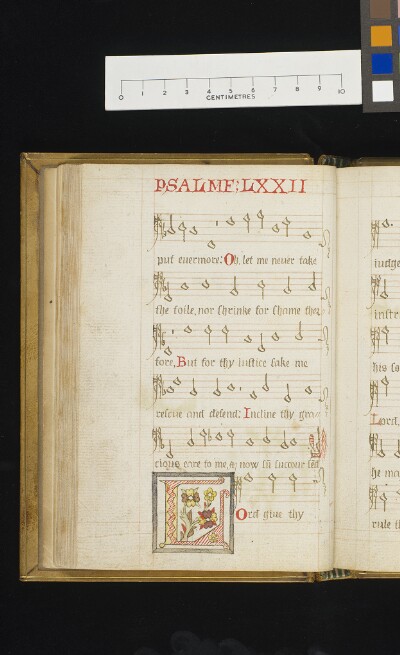 0 1 2 3 4 5 6 7 8 9 10
CENTIMETRES
PSALME: LXXII
put euermore: Oh, let me neuer take
the foile, nor shrinke for shame ther
fore, But for thy Iustice sake me
rescue and defend: Incline thy gra
cious eare to me, & now succour
Ord giue thy
iudge
his
Lord,
he
rule